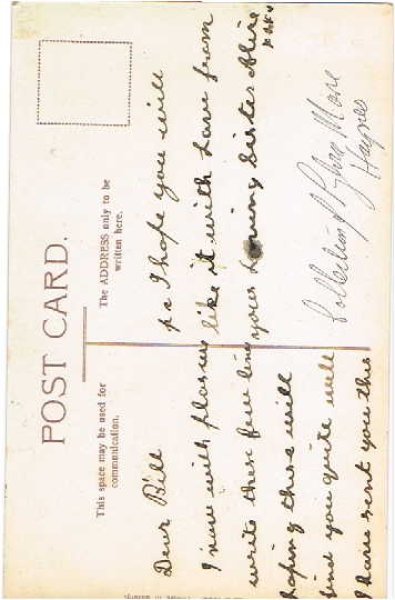 POST CARD.
This space may be used for
communication.
The ADDRESS only to be
written here.
Dear Bill
I now with pleasure
write these few line
hoping these will
find you quite well
I have sent you this
pc I hope you will
like it with love from
your loving sister Alice
xxx
Collection of Sylvia More
Haynes